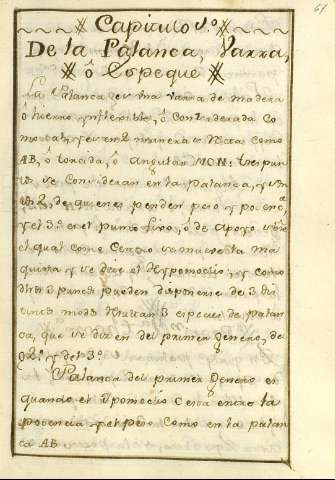 67
Capitulo 1.º
De la Palanca, Varra,
ô Espeque
La Palanca es una varra de madera
ô hierro ynflexible, ô considerada co
mo tal, y es en manera Recta como
AB, ô torcida, ô angular MON: tres pun
tos se consideran en la palanca, y un
de quienes penden peso y potencia
y el 3.º es el punto fixo, ô de apoyo sobre
el qual como Centro se mueve la ma
quina y se dice el Hypomoclio, y como
dhos 3 puntos pueden disponerse de 3 dis
tintos modos Resultan 3 especies de palan
ca, que se dizen del primer genero, de
2.º y del 3.º
Palanca del primer genero es
quando el Ypomoclio C esta entre la
potencia y el peso como en la palan
ca AB